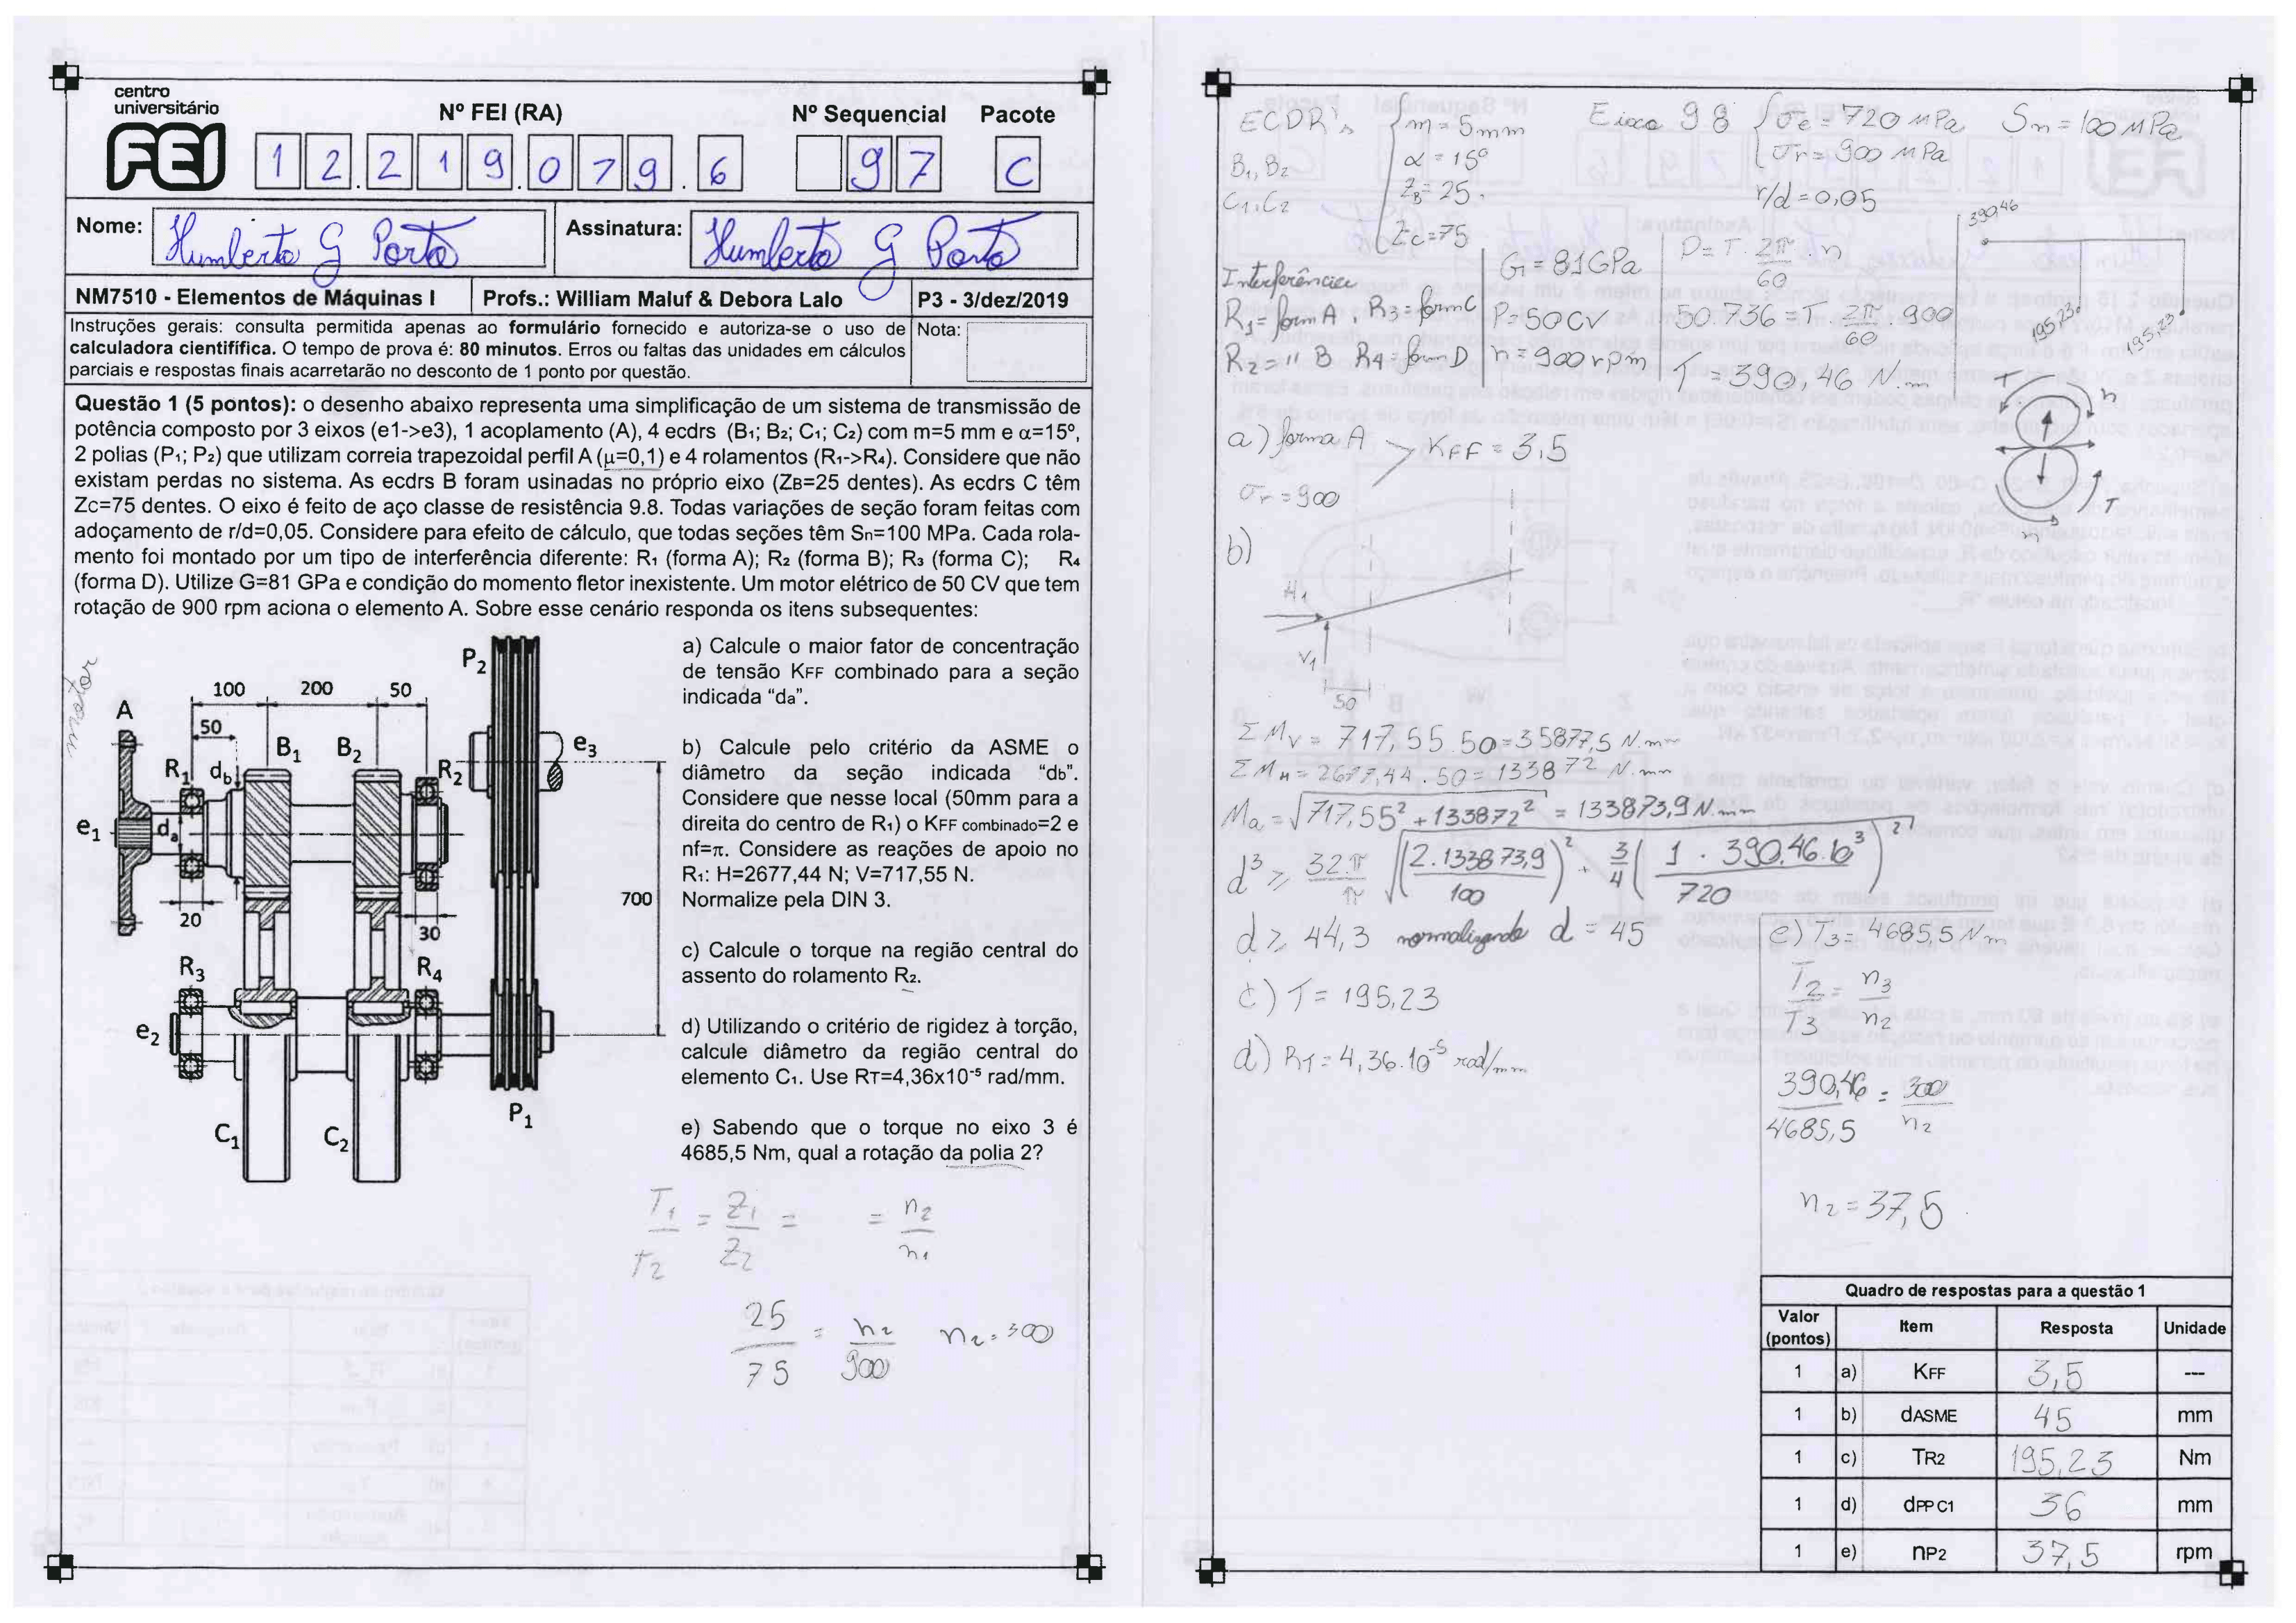 centro
universitário
FEI
Nº FEI (RA)
Nº Sequencial
Pacote
1 2 . 2 1 9 . 0 7 9 . 6
9 7
C
Nome: Humberto G Porto
Assinatura: Humberto G Porto
NM7510 - Elementos de Máquinas I
Profs.: William Maluf & Debora Lalo
P3 - 3/dez/2019
Instruções gerais: consulta permitida apenas ao formulário fornecido e autoriza-se o uso de
calculadora cientifífica. O tempo de prova é: 80 minutos. Erros ou faltas das unidades em cálculos
parciais e respostas finais acarretarão no desconto de 1 ponto por questão.
Nota:
Questão 1 (5 pontos): o desenho abaixo representa uma simplificação de um sistema de transmissão de
potência composto por 3 eixos (e1->e3), 1 acoplamento (A), 4 ecdrs (B1; B2; C1; C2) com m=5 mm e α=15º,
2 polias (P1; P2) que utilizam correia trapezoidal perfil A (µ=0,1) e 4 rolamentos (R1->R4). Considere que não
existam perdas no sistema. As ecdrs B foram usinadas no próprio eixo (ZB=25 dentes). As ecdrs C têm
Zc=75 dentes. O eixo é feito de aço classe de resistência 9.8. Todas variações de seção foram feitas com
adoçamento de r/d=0,05. Considere para efeito de cálculo, que todas seções têm Sn=100 MPa. Cada rola-
mento foi montado por um tipo de interferência diferente: R1 (forma A); R2 (forma B); R3 (forma C); R4
(forma D). Utilize G=81 GPa e condição do momento fletor inexistente. Um motor elétrico de 50 CV que tem
rotação de 900 rpm aciona o elemento A. Sobre esse cenário responda os itens subsequentes:
motor
A
100
200
50
50
R1
db
B1
B2
R2
P2
e3
e1
da
20
30
700
R3
R4
e2
C1
C2
P1
a) Calcule o maior fator de concentração
de tensão KFF combinado para a seção
indicada “da”.
b) Calcule pelo critério da ASME o
diâmetro da seção indicada “db”.
Considere que nesse local (50mm para a
direita do centro de R1) o KFF combinado=2 e
nf=π. Considere as reações de apoio no
R1: H=2677,44 N; V=717,55 N.
Normalize pela DIN 3.
c) Calcule o torque na região central do
assento do rolamento R2.
d) Utilizando o critério de rigidez à torção,
calcule diâmetro da região central do
elemento C1. Use RT=4,36x10-5 rad/mm.
e) Sabendo que o torque no eixo 3 é
4685,5 Nm, qual a rotação da polia 2?
T1/T2 = Z1/Z2 = = n2/n1
25/75 = n2/900 n2 = 300
ECDR's
B1, B2
C1, C2
m = 5mm
α = 15º
ZB = 25
Zc = 75
Eixo 9 8
σe = 720 MPa
σr = 900 MPa
Sn = 100 MPa
r/d = 0,05
Interferência
R1 = form A, R3 = form C
R2 = " B R4 = form D
G = 81 GPa
P = 50 CV
n = 900 rpm
P = T . 2π/60 . n
50.736 = T . 2π/60 . 900
T = 390,46 N.m
390,46
195,23
195,23
T
n
T
n
a) forma A
σr = 900
KFF = 3,5
b)
H1
V1
50
ΣMV = 717,55 . 50 = 35877,5 N.mm
ΣMH = 2677,44 . 50 = 133872 N.mm
Ma = √717,55² + 133872² = 133873,9 N.mm
d³ ≥ 32.π/π √(2.133873,9/100)² + 3/4 (1 . 390,46.10³/720)²
d ≥ 44,3 normalizando d = 45
c) T = 195,23
d) RT = 4,36.10-5 rad/mm
e) T3 = 4685,5 Nm
T2/T3 = n3/n2
390,46/4685,5 = 300/n2
n2 = 37,5
Quadro de respostas para a questão 1
Valor (pontos) Item Resposta Unidade
1 a) KFF 3,5 ---
1 b) dASME 45 mm
1 c) TR2 195,23 Nm
1 d) dPP C1 36 mm
1 e) nP2 37,5 rpm